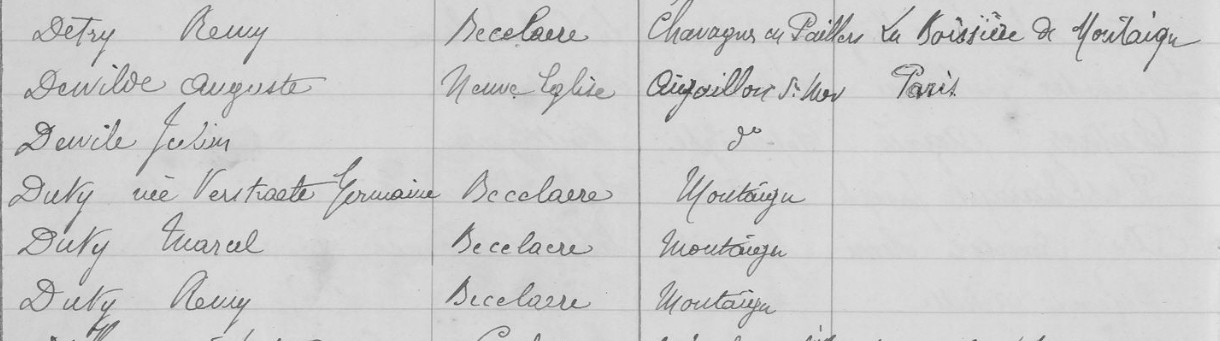 Detry Remy Becelaere Chavagnes en Paillers La Boissière de Montaigu
Dewilde Auguste Neuve Eglise Aiguillon s/ Paris
Dewile Julien do
Duty née Verstraete Germaine Becelaere Montaigu
Duty Marcel Becelaere Montaigu
Duty Remy Becelaere Montaigu